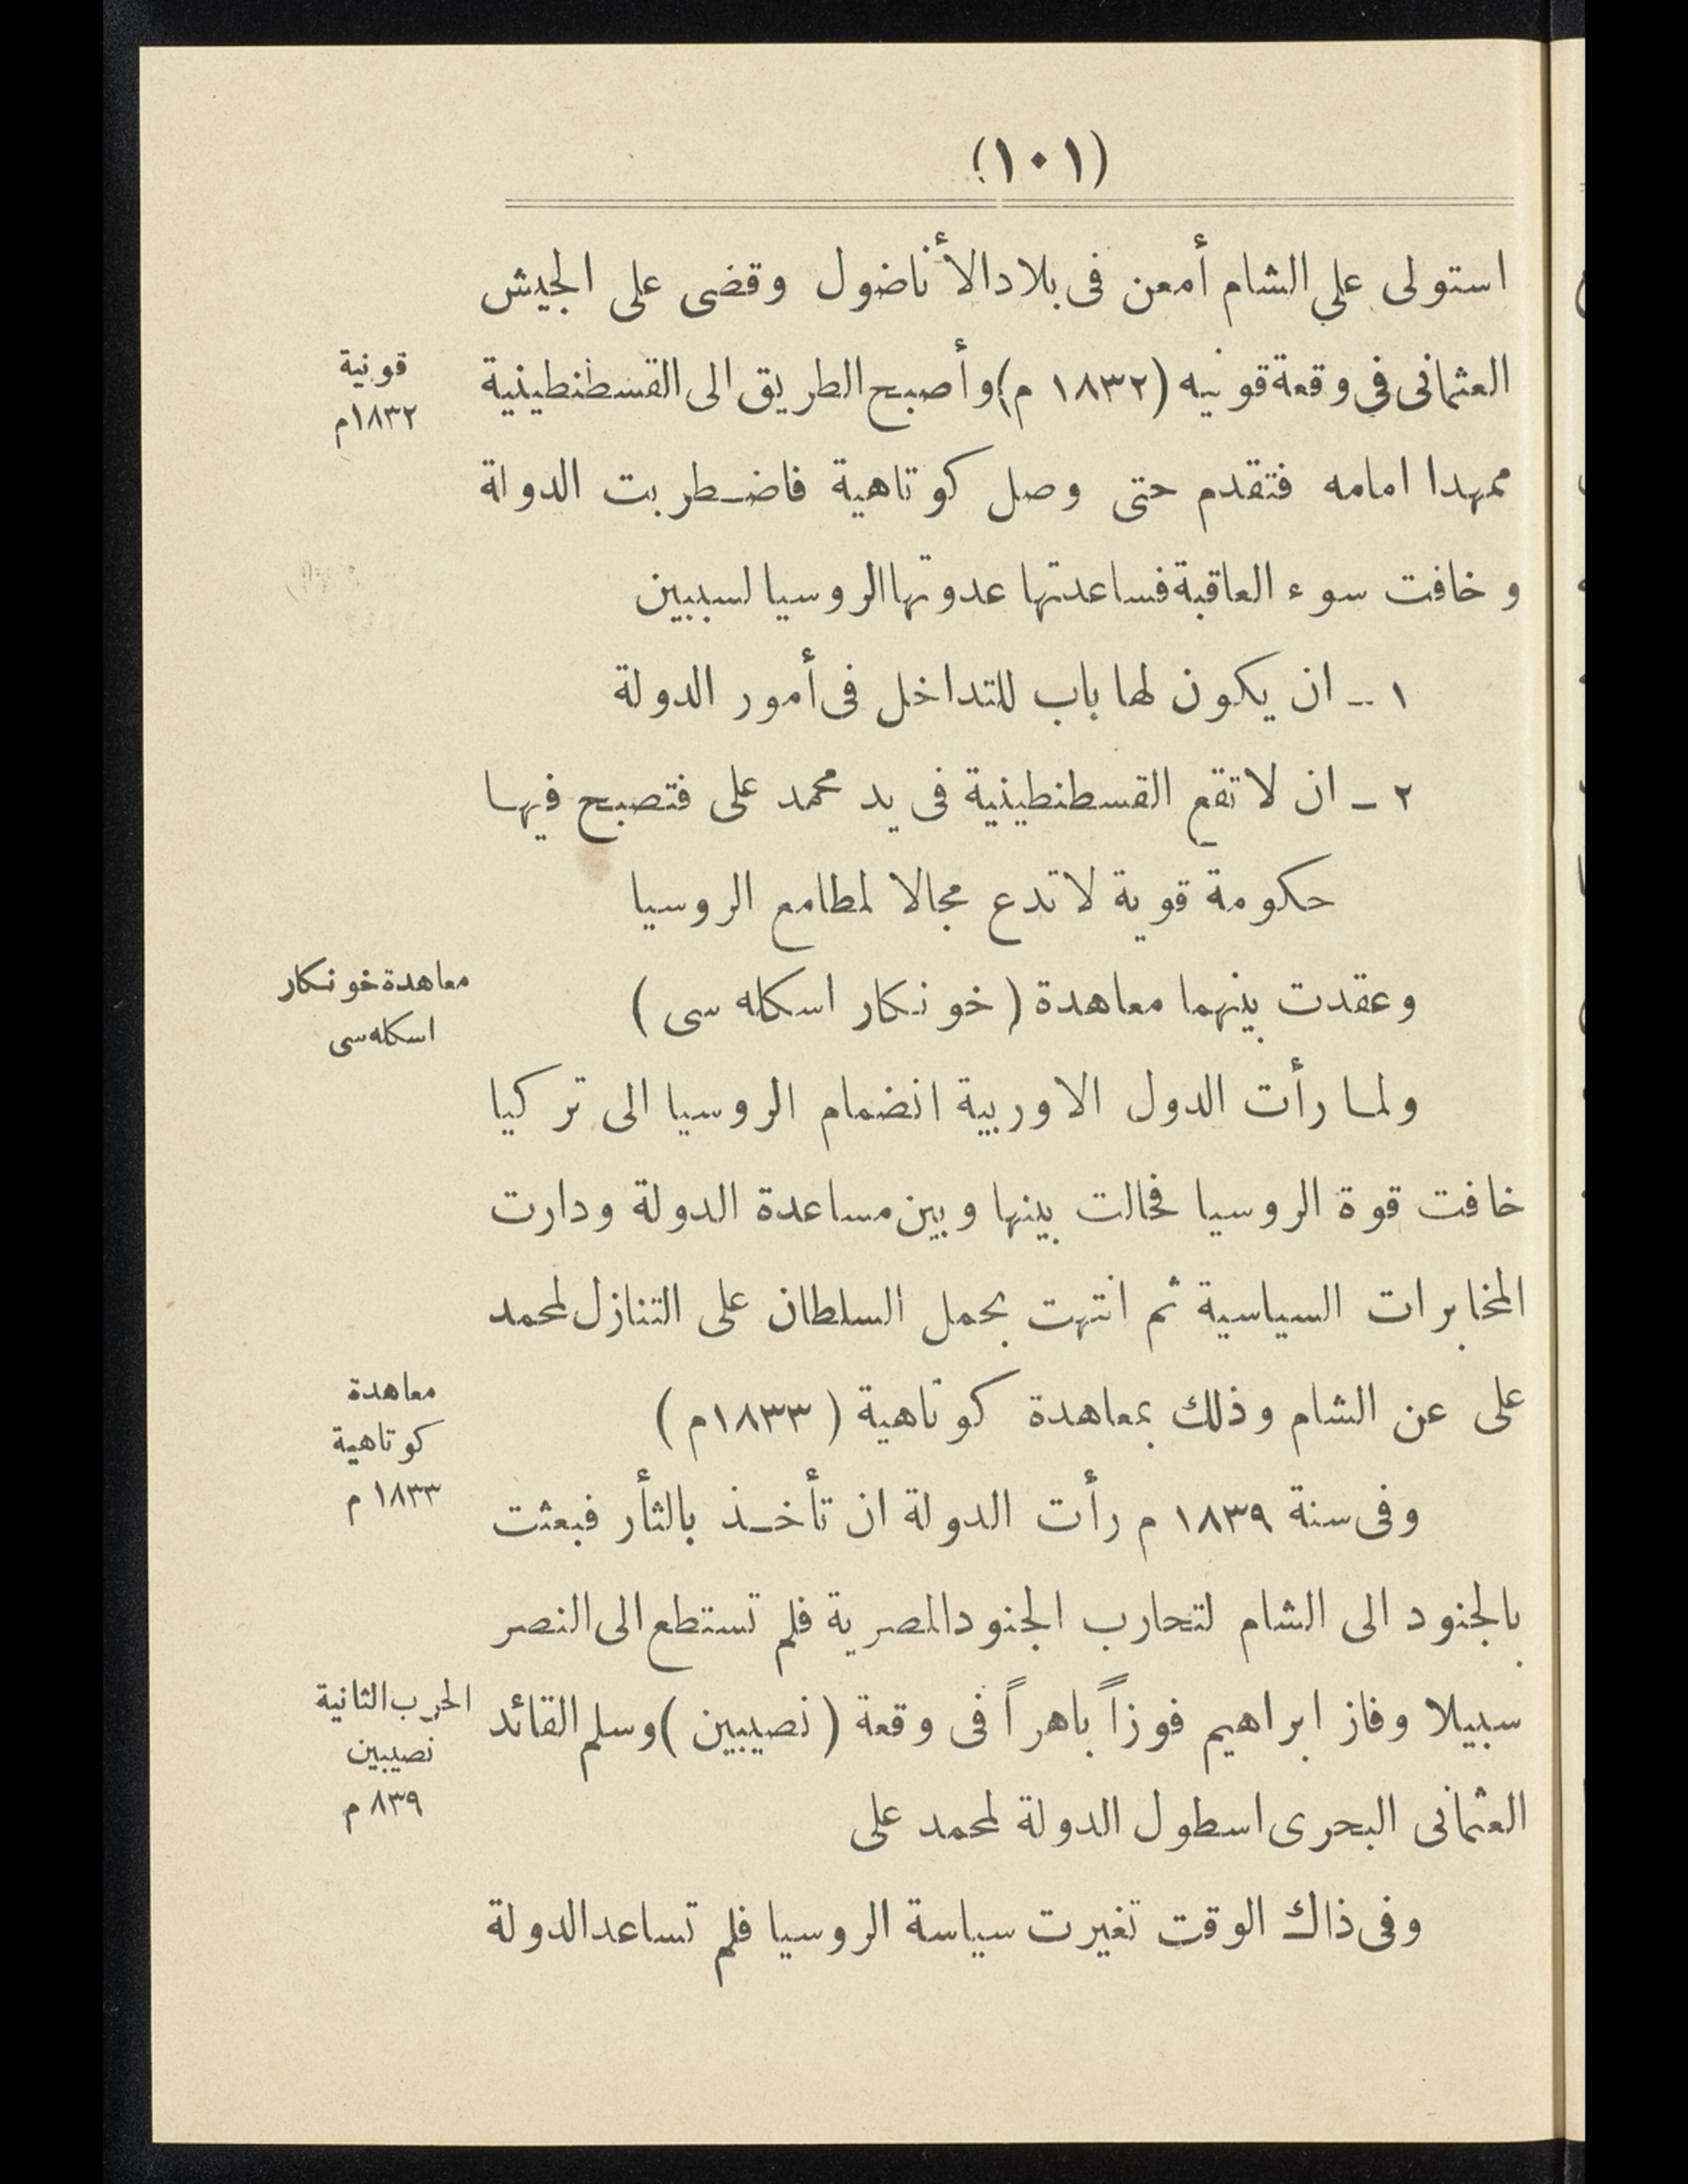 (١٠١)
استولى علي الشام أمعن فى بلاد الأناضول وقضى على الجيش
العثمانى فى وقعة قونيه (١٨٣٢ م) وأصبح الطريق الى القسطنطينية
قونية
١٨٣٢م
ممهدا امامه فتقدم حتى وصل كوتاهية فاضـطربت الدولة
وخافت سوء العاقبة فساعدتها عدوتها الروسيا لسببين
١ ـ ان يكون لها باب للتداخل فى أمور الدولة
٢ ـ ان لا تقع القسطنطينية فى يد محمد على فتصبح فيهـا
حكومة قوية لا تدع مجالا لمطامع الروسيا
وعقدت بينهما معاهدة (خونكار اسكله سى)
معاهدة خونكار
اسكله سى
ولمـا رأت الدول الاوربية انضمام الروسيا الى تركيا
خافت قوة الروسيا فحالت بينها وبين مساعدة الدولة ودارت
المخابرات السياسية ثم انتهت بحمل السلطان على التنازل لمحمد
على عن الشام وذلك بمعاهدة كوتاهية (١٨٣٣م)
معاهدة
كوتاهية
١٨٣٣ م
وفى سنة ١٨٣٩ م رأت الدولة ان تأخـذ بالثأر فبعثت
بالجنود الى الشام لتحارب الجنود المصرية فلم تستطع الى النصر
سبيلا وفاز ابراهيم فوزاً باهراً فى وقعة (نصيبين) وسلم القائد
الحرب الثانية
نصيبين
٨٣٩ م
العثمانى البحرى اسطول الدولة لمحمد على
وفى ذاك الوقت تغيرت سياسة الروسيا فلم تساعد الدولة